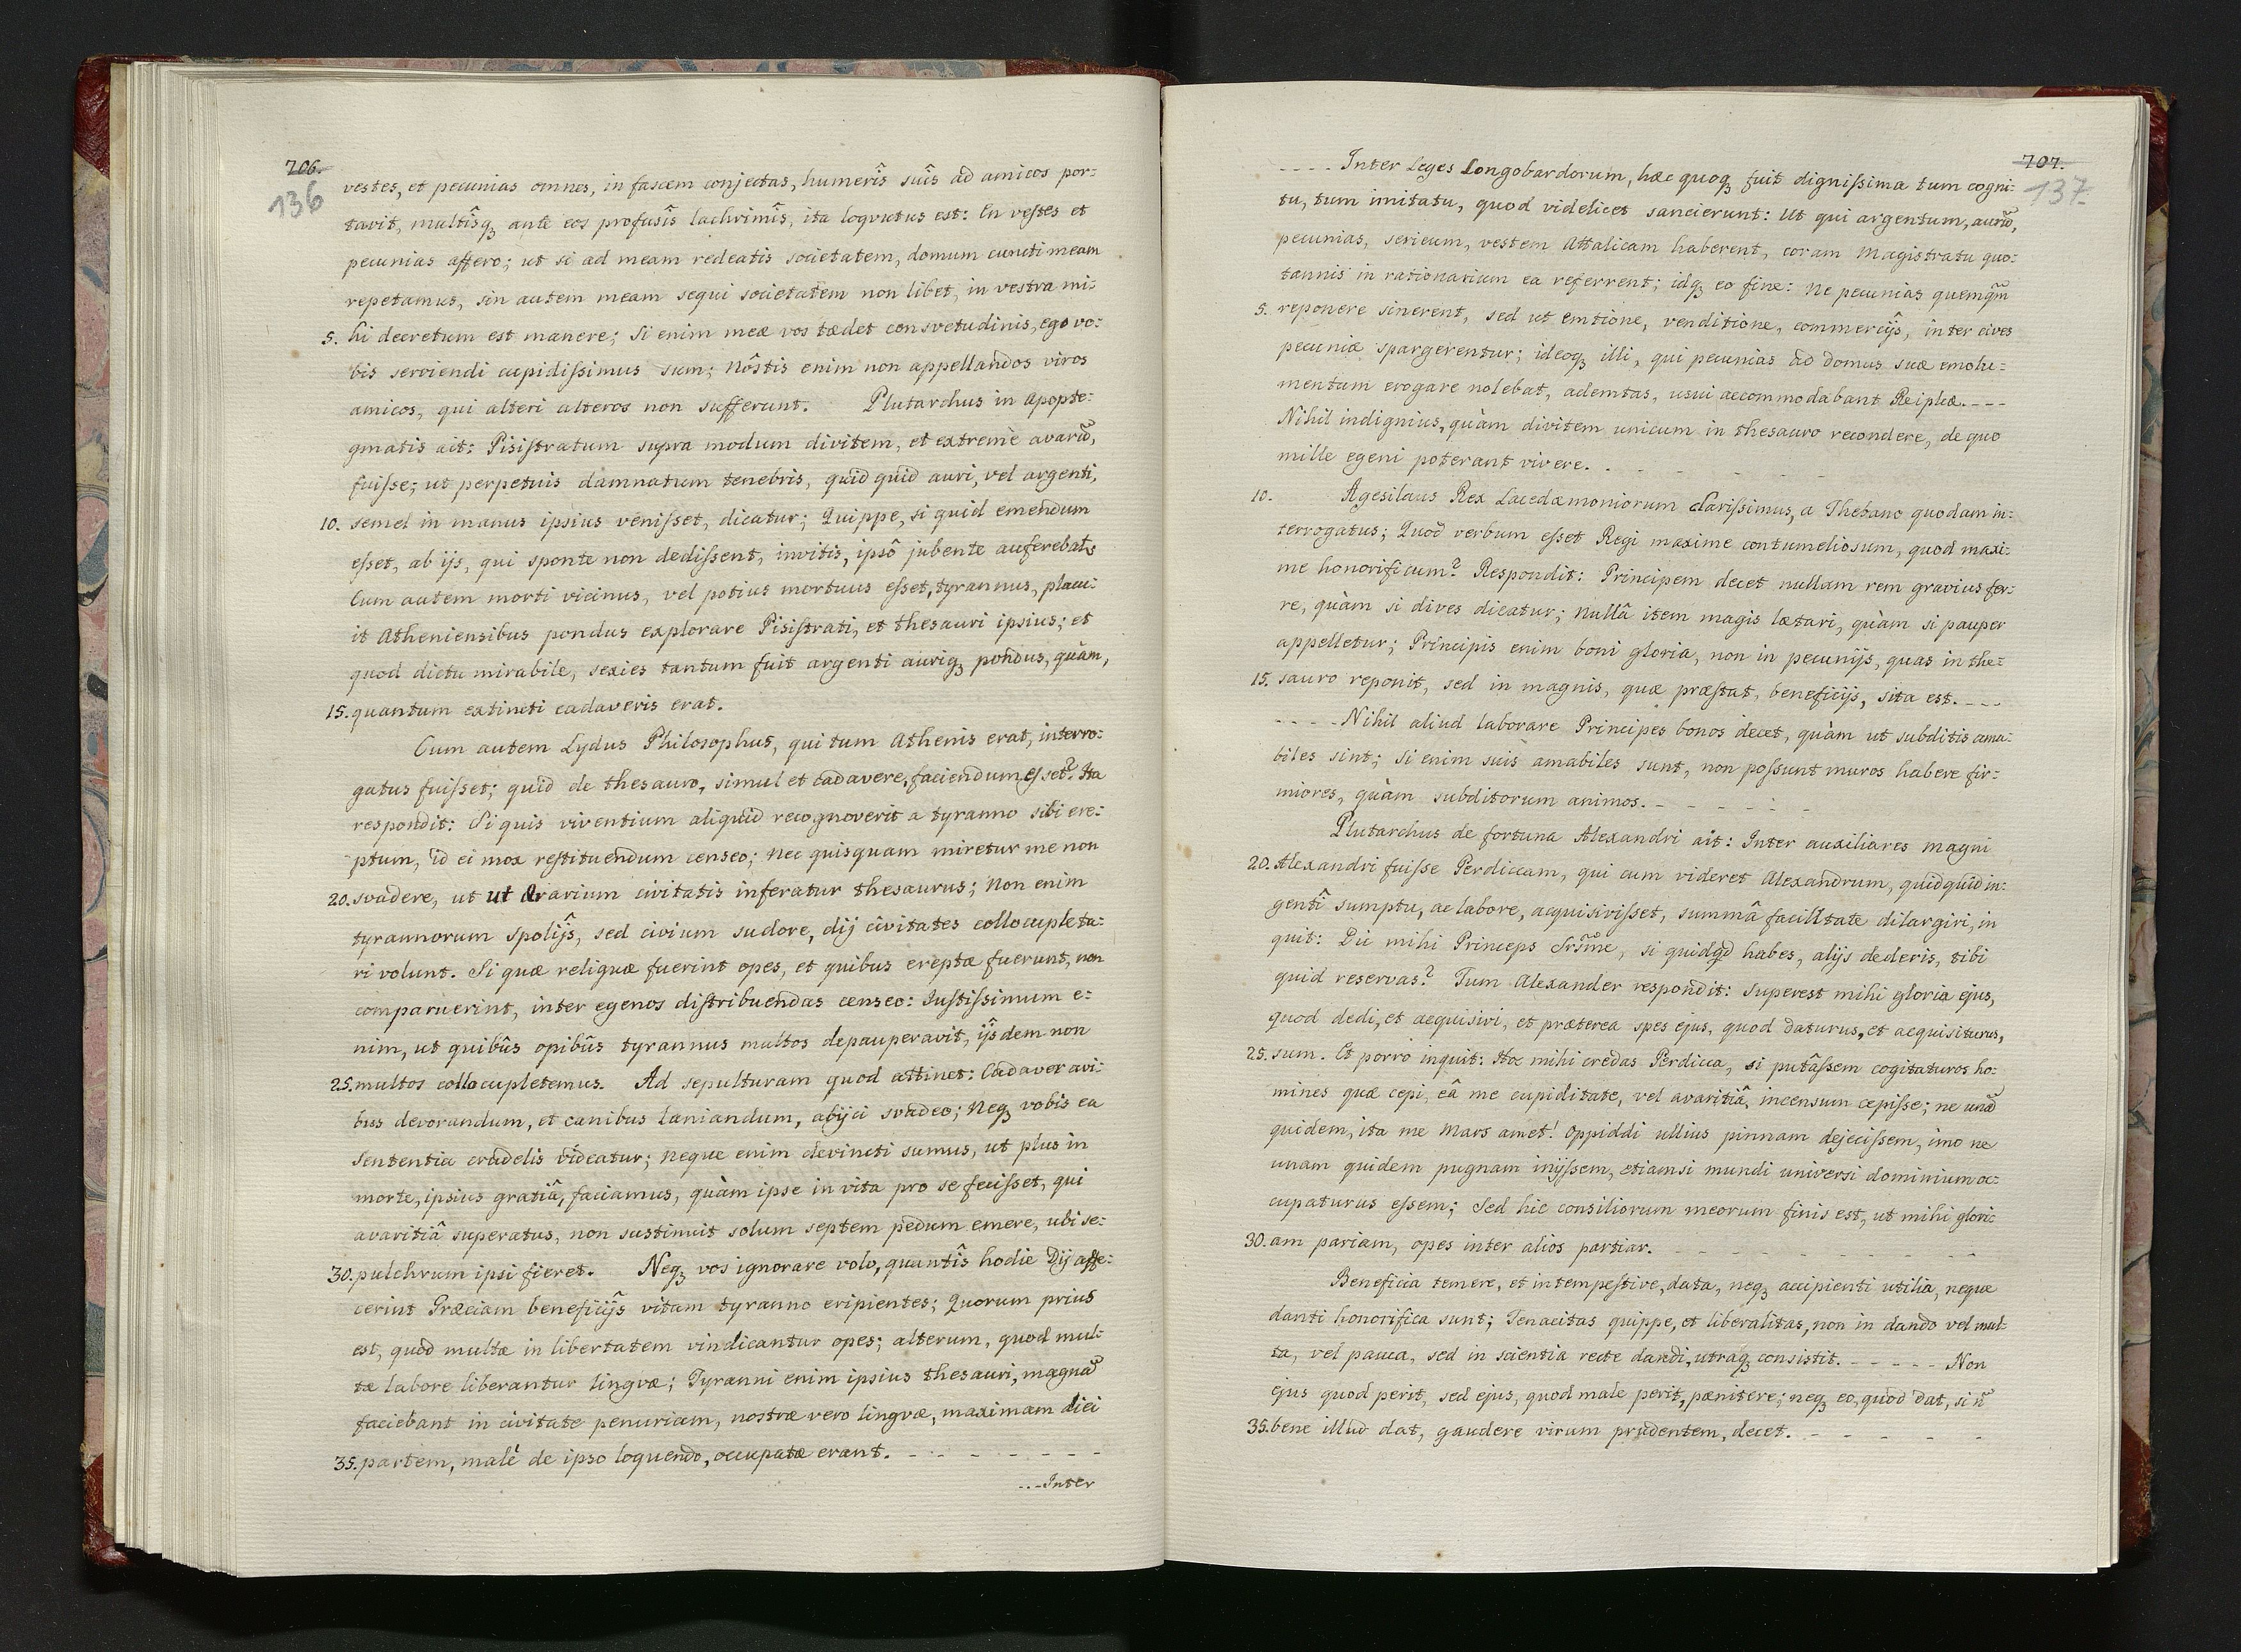 706.
136
vestes, et pecunias omnes, in fascem conjectas, humerîs suîs ad amicos por:
tavit, multîsqȝ ante eos profusîs lachrimîs, ita loqvutus est: En vestes et
pecunias affero; ut si ad meam redeatis societatem, domum cuncti meam
repetamus, sin autem meam sequi societatem non libet, in vestra mi:
5. hi decretum est manere; Si enim meæ vos tædet consvetudinis, ego vo:
bis serviendi cupidissimus sum; Nôstis enim non appellandos viros
amicos, qui alteri alteros non sufferunt. Plutarchus in Apopte:
gmatis ait: Pisistratum supra modum divitem, et extremè avarũ,
fuisse; ut perpetuis damnatum tenebris, quidquid auri, vel argenti,
10. semel in manus ipsius venisset, dicatur; Quippe, si quid emendum
esset, ab ijs, qui sponte non dedissent, invitis, ipsô jubente auferebat.
Cum autem morti vicinus, vel potius mortuus esset, tyrannus, placu:
it Atheniensibus pondus explorare Pisistrati, et thesauri ipsius; et
quod dictu mirabile, sexies tantum fuit argenti auriqȝ pondus, quàm,
15. quantum extincti cadaveris erat.
Cum autem Lydus Philosophus, qui tum Athenis erat, interro:
gatus fuisset; quid de thesauro, simul et cadavere, faciendum esset? Ita
respondit: Si quis viventium aliquid recognoverit a tyranno sibi ere:
ptum, id ei mox restituendum censeo; Nec quisquam miretur me non
20. svadere, ut ut ærarium civitatis inferatur thesaurus; Non enim
tyrannorum spolijs, sed civium sudore, dij civitates collocupleta:
ri volunt. Si quæ reliquæ fuerint opes, et quibus ereptæ fuerunt, non
comparuerint, inter egenos distribuendas censeo: Iustissimum e:
nim, ut quibûs opibûs tyrannus multos depauperavit, ijsdem non
25. multos collocupletemus. Ad sepulturam quod attinet: Cadaver avi:
bus devorandum, et canibus laniandum, abijci svadeo; Neqȝ vobis ea
sententia crudelis videatur; neque enim devincti sumus, ut plus in
morte, ipsius gratiâ, faciamus, quàm ipse in vita pro se fecisset, qui
avaritiâ superatus, non sustinuit solum septem pedum emere, ubi se:
30. pulchrum ipsi fieret. Neqȝ vos ignorare volo, quantîs hodie Dij affe:
cerint Græciam beneficijs vitam tyranno eripientes; Quorum prius
est, quòd multæ in libertatem vindicantur opes; alterum, quod mul:
tæ labore liberantur lingvæ; Tyranni enim ipsius thesauri, magnã
faciebant in civitate penuriam, nostræ vero lingvæ, maximam diei
35. partem, malè de ipso loquendo, occupatæ erant. - - - - - - -
...Inter
707.
137
- - - - Inter Leges Longobardorum, hæc quoqȝ fuit dignissima tum cogni:
tu, tum imitatu, quod videlicet sancierunt: Ut qui argentum, aurũ,
pecunias, sericum, vestem Attalicam haberent, coram Magistratu quo:
tannis in rationarium ea referrent; idqȝ eo fine: Ne pecunias quemqm̃
5. reponere sinerent, sed ut emtione, venditione, commercijs, inter cives
pecuniæ spargerentur; ideoqȝ illi, qui pecunias ad domus suæ emolu:
mentum erogare nolebat, ademtas, usui accommodabant Reiplcæ. - - -
Nihil indignius, quàm divitem unicum in thesauro recondere, de quo
mille egeni poterant vivere. . - - - - -
10. Agesilaus Rex Lacedæmoniorum clarissimus, a Thebano quodam in:
terrogatus; Quod verbum esset Regi maxime contumeliosum, quod maxi:
me honorificum? Respondit: Principem decet nullam rem gravius fer:
re, quàm si dives dicatur; Nullâ item magis lætari, quàm si pauper
appelletur; Principis enim boni gloria, non in pecunijs, quas in the:
15. sauro reponit, sed in magnis, quæ præstat, beneficijs, sita est. - - -
- - - - Nihil aliud laborare Principes bonos decet, quàm ut subditis ama:
biles sint; Si enim suis amabiles sunt, non possunt muros habere fir:
miores, quàm subditorum animos. - - - - - -
Plutarchus de fortuna Alexandri ait: Inter auxiliares magni
20. Alexandri fuisse Perdiccam, qui cum videret Alexandrum, quidquid in:
gentî sumptu, ac labore, acquisivisset, summâ facilitate dilargiri, in
quit: Dic mihi Princeps Srsme, si quidqd habes, alijs dederis, tibi
quid reservas? Tum Alexander respondit: Superest mihi gloria ejus,
quod dedi, et acquisivi, et præterea spes ejus, quod daturus, et acquisiturus,
25. sum. Et porro inquit: Hoc mihi credas Perdicca, si putâssem cogitaturos ho:
mines quæ cepi, eâ me cupiditate, vel avaritiâ, incensum cepisse; ne unã
quidem, ita me Mars amet! Oppiddi ullius pinnam dejecissem, imo ne
unam quidem pugnam inijssem, etiamsi mundi universi dominium oc:
cupaturus essem; Sed hic consiliorum meorum finis est, ut mihi glori:
30. am pariam, opes inter alios partiar. - - - - - - - - -
Beneficia temere, et intempestive, data, neqȝ accipienti utilia, neque
danti honorifica sunt; Tenacitas quippe, et liberalitas, non in dando vel mul:
ta, vel pauca, sed in scientia recte dandi, utraqȝ consistit. - - - - - Non
ejus quod perit, sed ejus, quod male perit, pænitere; neqȝ eo, quod dat, si ñ
35. bene illud dat, gaudere virum prudentem, decet. - - - - - -